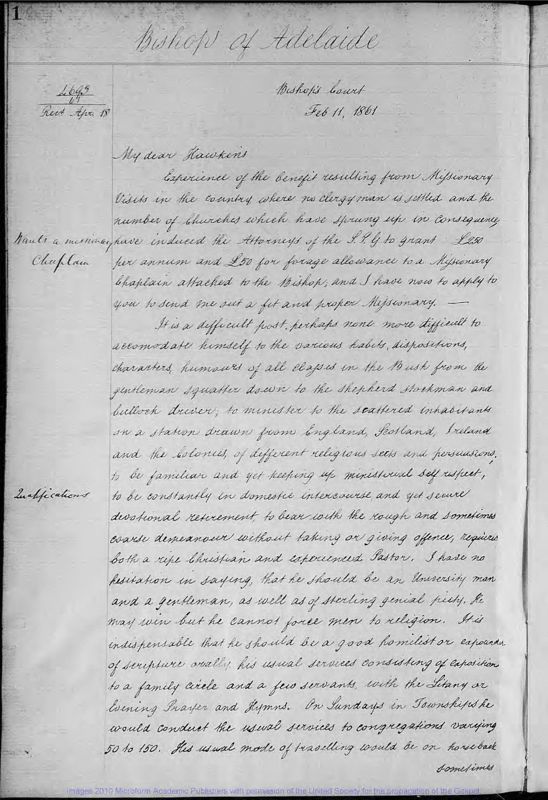 1
Bishop of Adelaide
Recd Apr. 18
Bishop's Court
Feb 11, 1861
My dear Hawkins
Experience of the benefit resulting from Missionary
Visits in the country where no clergyman is settled and the
number of Churches which have sprung up in consequence
Wants a missionary
Chaplain
have induced the Attorneys of the S.P.G to grant £250
per annum and £50 for forage allowance to a Missionary
Chaplain attached to the Bishop; and I have now to apply to
you to send me out a fit and proper Missionary. —
It is a difficult post, perhaps none more difficult to
accomodate himself to the various habits, dispositions,
characters, humours of all classes in the Bush from the
gentleman squatter down to the shepherd stockman and
bullock driver; to minister to the scattered inhabitants
on a station drawn from England, Scotland, Ireland
and the Colonies, of different religious sects and persuasions,
to be familiar and yet keeping up ministerial self respect;
Qualifications
to be constantly in domestic intercourse and yet secure
devotional retirement to bear with the rough and sometimes
coarse demeanour without taking or giving offence, requires
both a ripe Christian and experienced Pastor. I have no
hesitation in saying, that he should be an University man
and a gentleman, as well as of sterling genial piety. He
may win but he cannot force men to religion. It is
indispensable that he should be a good homilist or expounder
of scripture orally his usual services consisting of exposition
to a family circle and a few servants, with the Litany or
Evening Prayer and Hymns. On Sundays in Townships he
would conduct the usual services to congregations varying
50 to 150. His usual mode of travelling would be on horseback
sometimes
Images 2010 Microform Academic Publishers with permission of the United Society for the propagation of the Gospel.